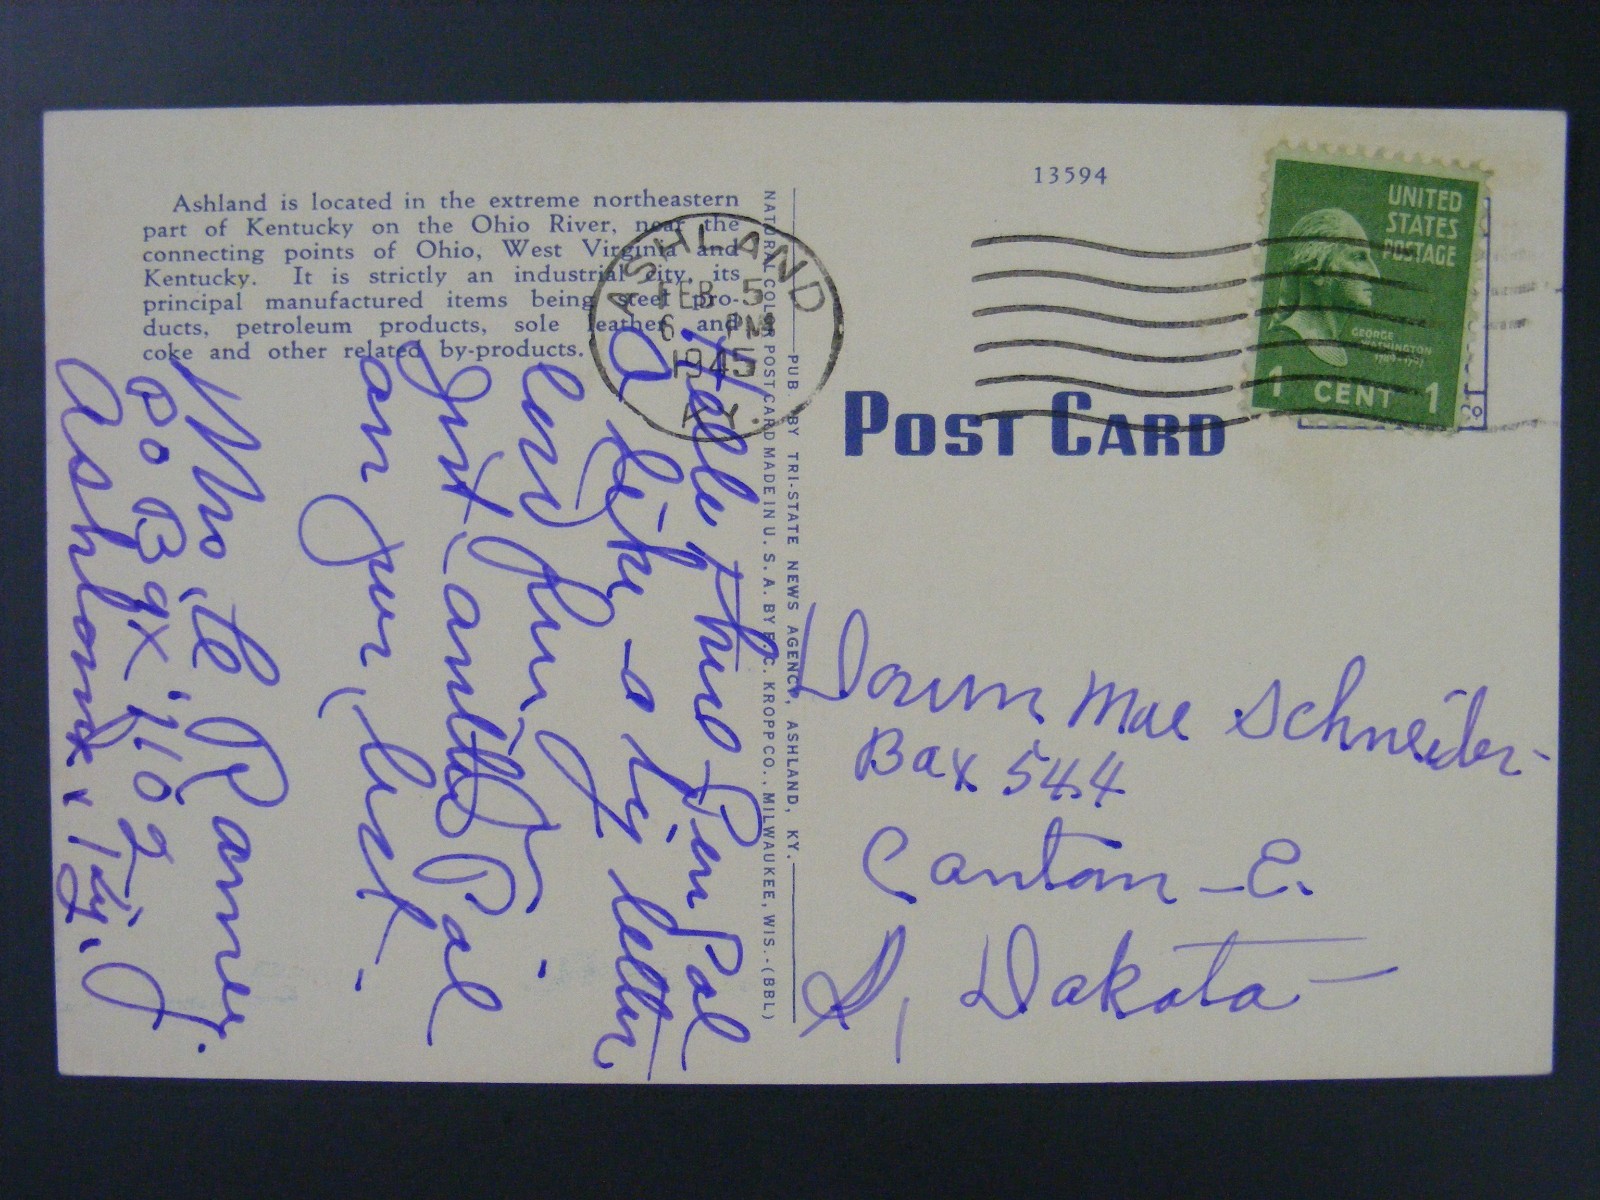 Ashland is located in the extreme northeastern
part of Kentucky on the Ohio River, near the
connecting points of Ohio, West Virginia and
Kentucky. It is strictly an industrial city, its
principal manufactured items being steel pro-
ducts, petroleum products, sole leather and
coke and other related by-products.
Hello
Pen Pal
letter
Pal
on your list -
P.O Box 1102
Ashland, Ky,
NATURAL COLOR POST CARD MADE IN U. S. A. BY E. C. KROPP CO., MILWAUKEE, WIS.-(BBL)
PUB. BY TRI-STATE NEWS AGENCY, ASHLAND, KY.
ASHLAND
FEB 5
6 PM
1945
KY.
13594
UNITED
STATES
POSTAGE
GEORGE
WASHINGTON
1789-1797
1 CENT 1
CO
POST CARD
Mae Schneider-
Box 544
Canton - 
S. Dakota -